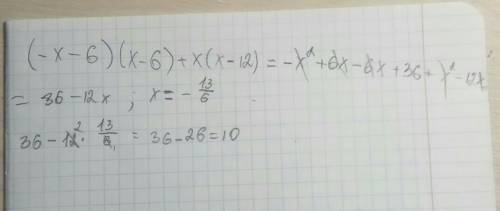 (-x-6)(x-6)+x(x-12)=-x²+6x-6x+36+x²-12x
= 36-12x ; x=-13/6
36-12²·13/6₁ = 36-26=10